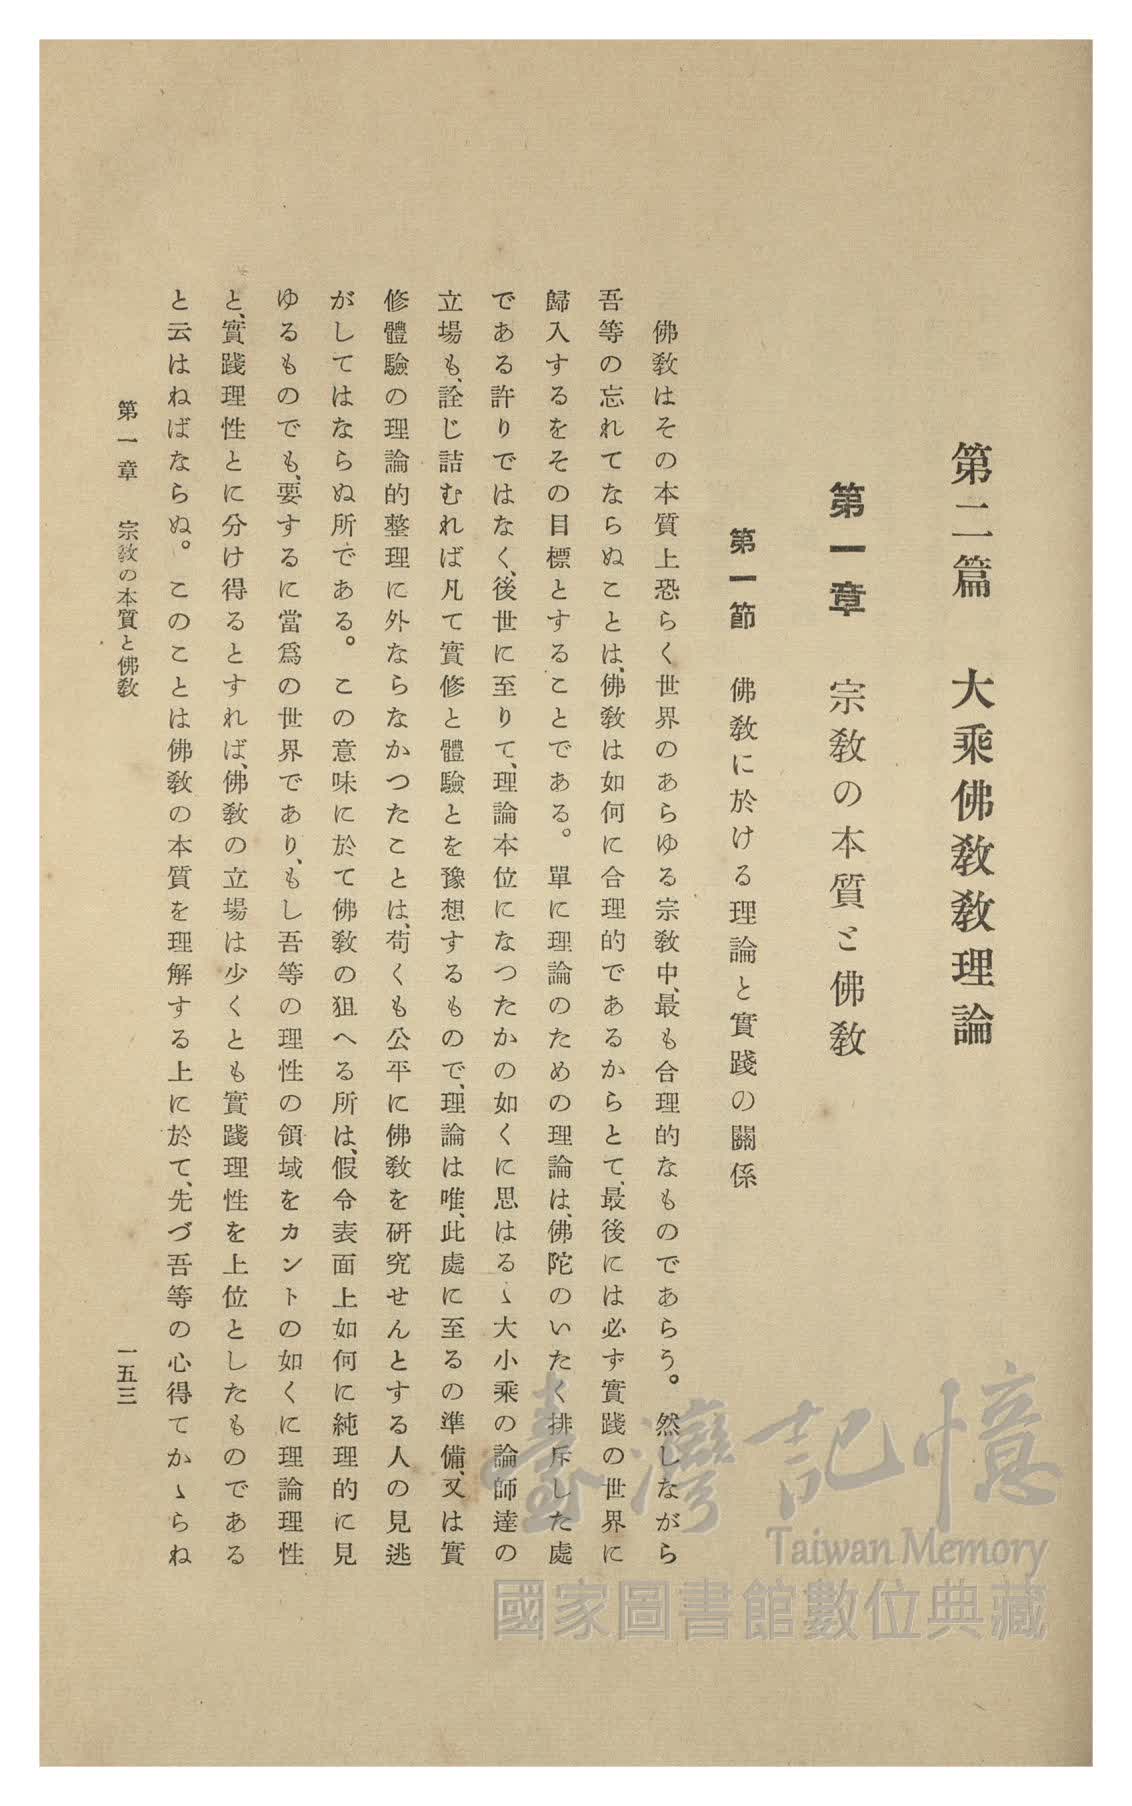 第二篇　大乘佛教教理論
第一章　宗教の本質と佛教
第一節　佛教に於ける理論と實踐の關係
佛教はその本質上恐らく世界のあらゆる宗教中、最も合理的なものであらう。然しながら
吾等の忘れてならぬことは、佛教は如何に合理的であるからとて、最後には必ず實踐の世界に
歸入するをその目標とすることである。單に理論のための理論は、佛陀のいたく排斥した處
である許りではなく、後世に至りて、理論本位になつたかの如くに思はるゝ大小乘の論師達の
立場も、詮じ詰むれば凡て實修と體驗とを豫想するもので、理論は唯、此處に至るの準備、又は實
修體驗の理論的整理に外ならなかつたことは、苟くも公平に佛教を研究せんとする人の見逃
がしてはならぬ所である。この意味に於て佛教の狙へる所は、假令表面上如何に純理的に見
ゆるものでも、要するに當爲の世界であり、もし吾等の理性の領域をカントの如くに理論理性
と、實踐理性とに分け得るとすれば、佛教の立場は少くとも實踐理性を上位としたものである
と云はねばならぬ。このことは佛教の本質を理解する上に於て、先づ吾等の心得てかゝらね
第一章　宗教の本質と佛教
一五三
臺灣記憶
Taiwan Memory
國家圖書館數位典藏